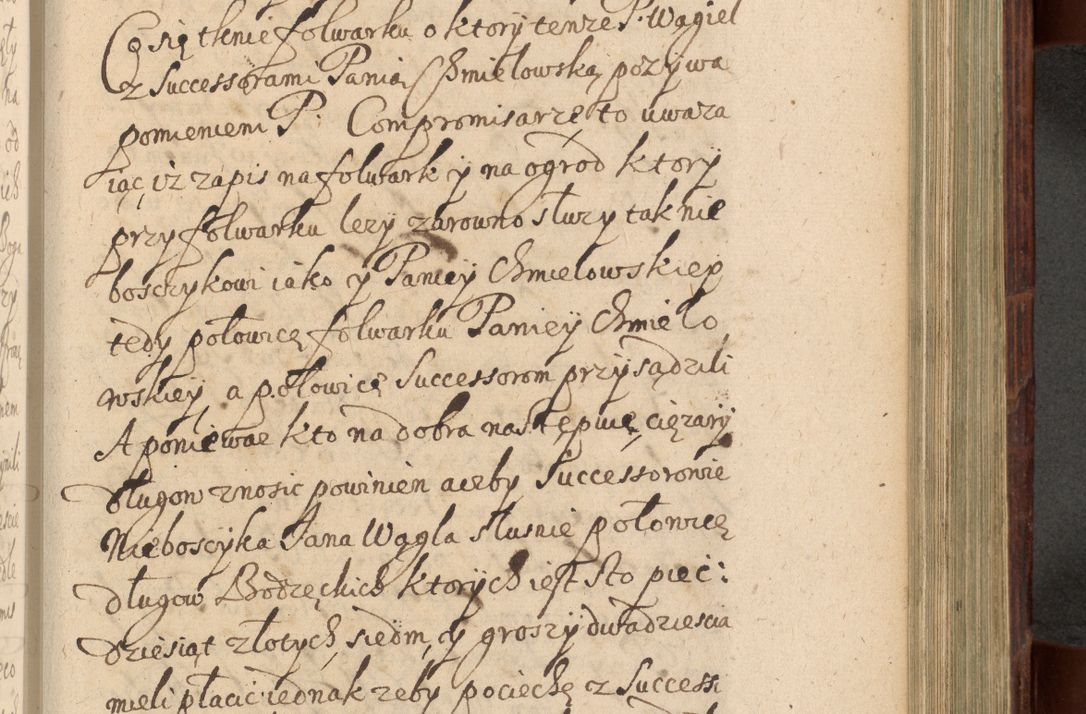 Co się tknie folwarku o ktory tenze P. Wągiel
z Successorami Panią Chmielowską pozywa
pomienieni P. Compromisarze to uwaza
iąc iz zapis na folwark y na ogrod ktory
przy folwarku lezy zarowno słuzy tak nie
bosczykowi iako y Paniey Chmielowskiey
tedy połowicę folwarku Paniey Chmielo
wskiey, a połowicę Successorom przysądzili
A poniewae kto na dobra następuie cięzary
długow znosic powinien aczby Successorowie
Nieboscyka Jana Wągla słusnie połowicę
długow Bodzęckich ktorych iest sto pięc:
dziesiąt złotych, siedm, y groszy dwadziescia
mieli płacic iednak zeby pociechę z Success: